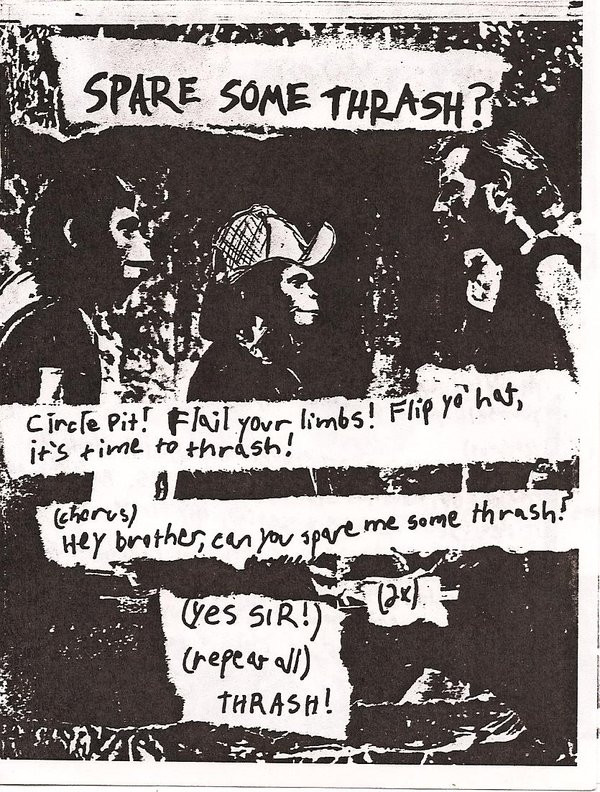 SPARE SOME THRASH?
Circle Pit! Flail your limbs! Flip yo' hat,
it's time to thrash!
(chorus)
Hey brother, can you spare me some thrash?
(2x)
(yes SIR!)
(repeat all)
THRASH!